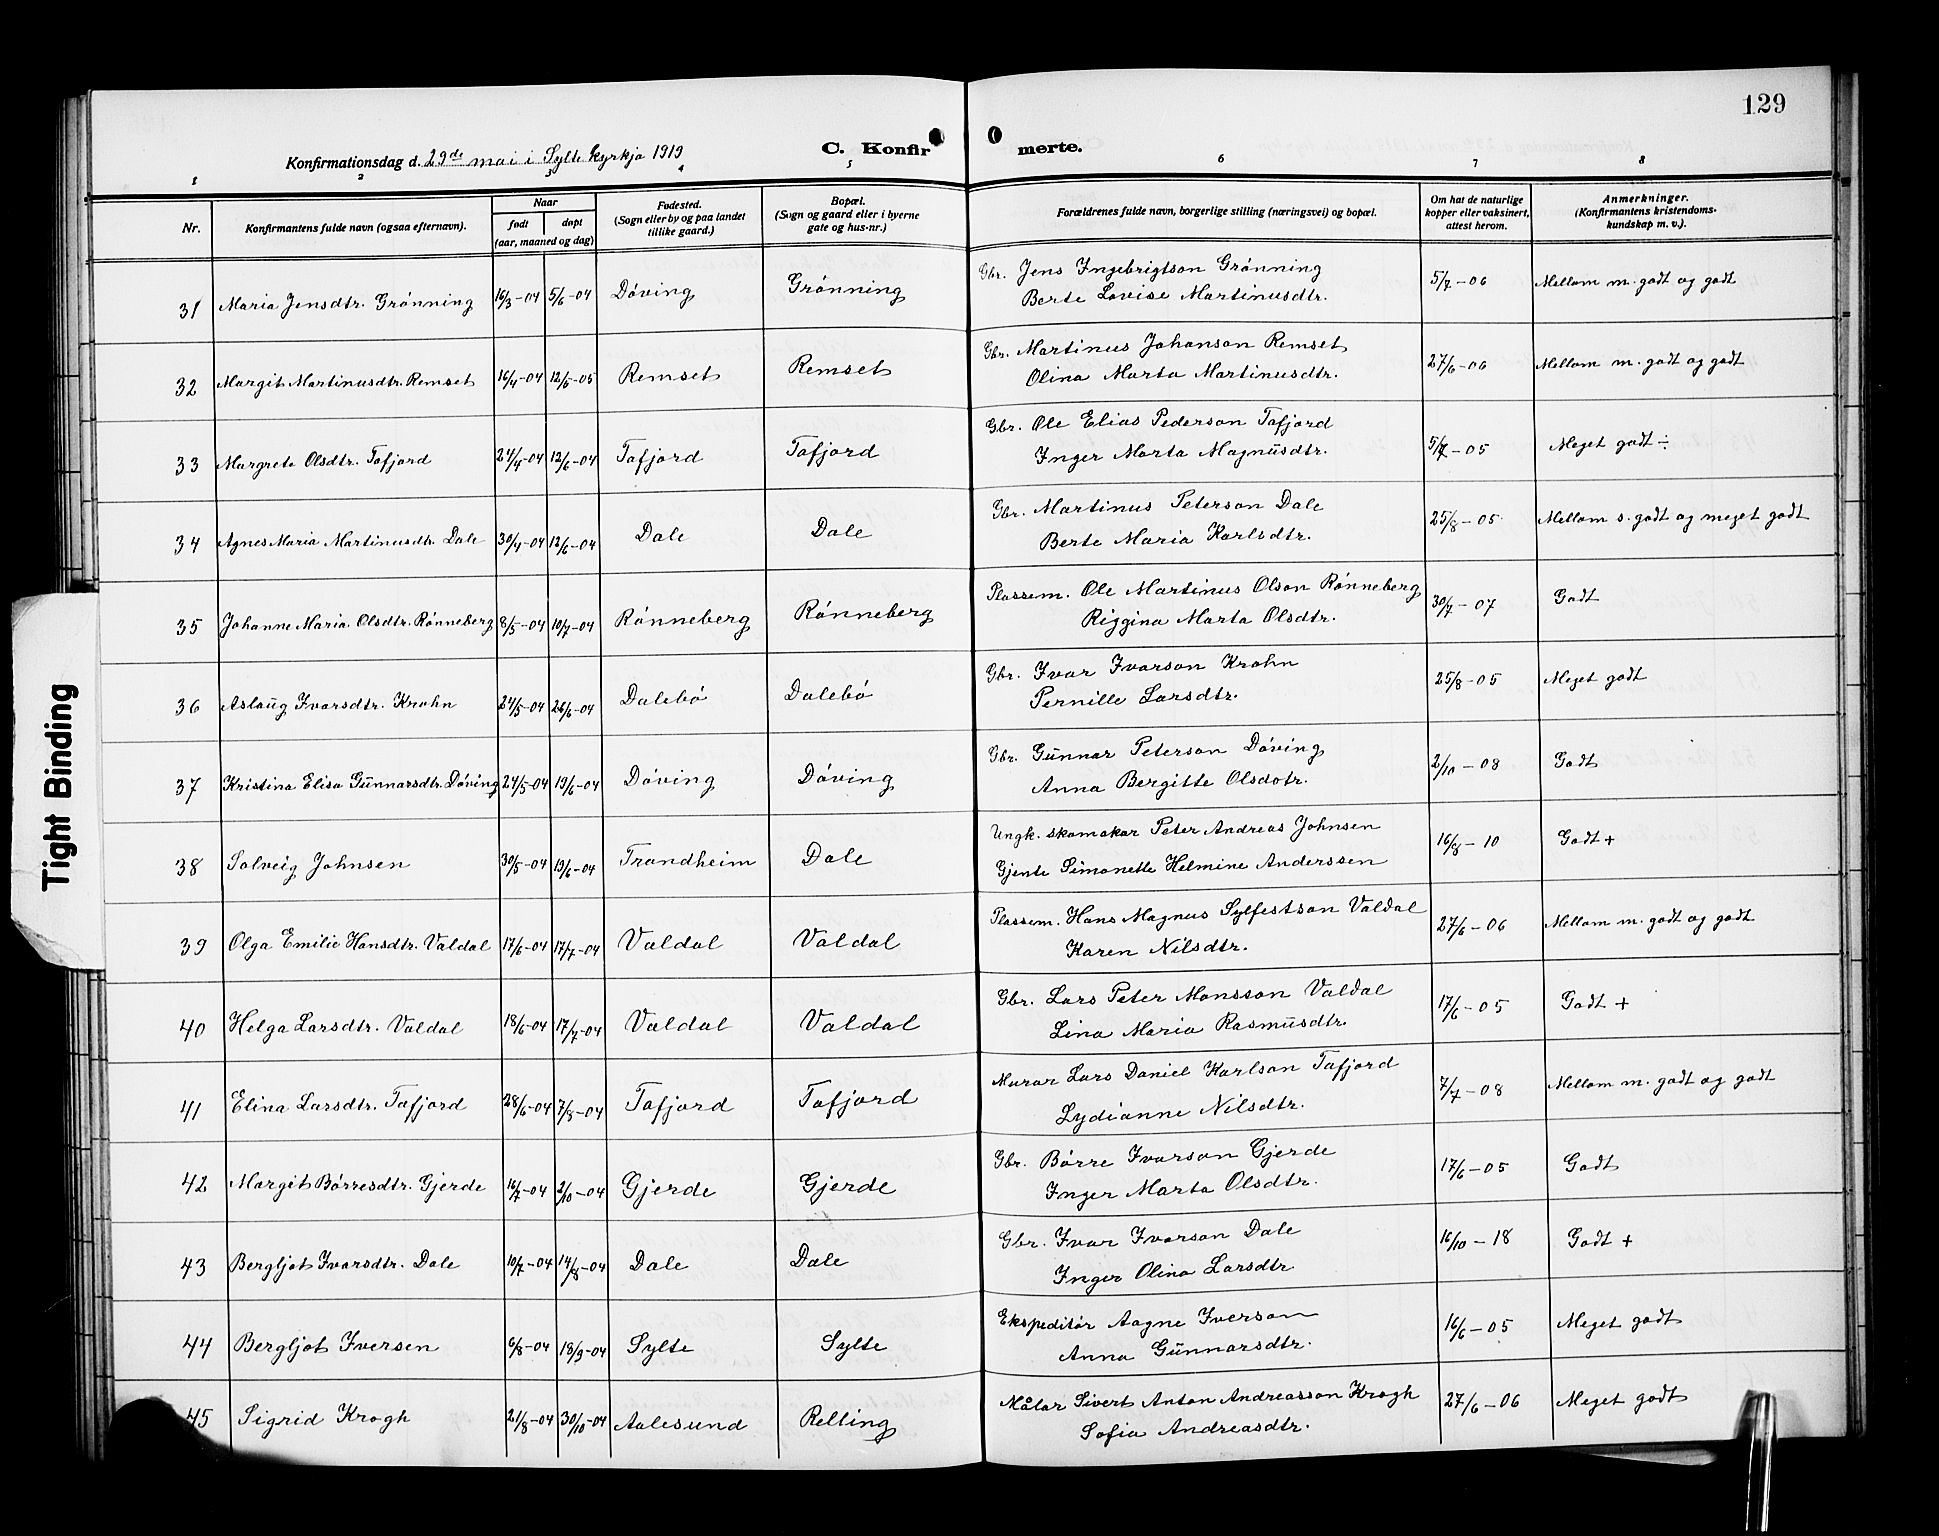 129
Konfirmationsdag d. 29de mai i Sylte kyrkja 1919 C. Konfirmerte.
1 2 3 4 5 6 7 8
Nr. Konfirmantens fulde navn (ogsaa efternavn). Naar født døpt (aar, maaned og dag) Fødested. (Sogn eller by og paa landet tillike gaard.) Bopæl. (Sogn og gaard eller i byerne gate og hus-nr.) Forældrenes fulde navn, borgerlige stilling (næringsvei) og bopæl. Om hat de naturlige kopper eller vaksinert, attest herom. Anmerkninger. (Konfirmantens kristendomskundskap m. v.).
31 Maria Jensdtr. Grønning 16/3-04 5/6-04 Døving Grønning Gbr. Jens Ingebrigtson Grønning 5/7-06 Mellom m. godt og godt
Berte Lovise Martinusdtr.
32 Margit Martinusdtr. Remset 16/4-04 12/5-05 Remset Remset Gbr. Martinus Johanson Remset 27/6-06 Mellom m. godt og godt
Olina Marta Martinusdtr.
33 Margreta Olsdtr. Tafjord 24/4-04 12/6-04 Tafjord Tafjord Gbr. Ole Elias Pederson Tafjord 5/7-05 Meget godt ÷
Inger Marta Magnusdtr.
34 Agnes Maria Martinusdtr. Dale 30/4-04 12/6-04 Dale Dale Gbr. Martinus Peterson Dale 25/8-05 Mellom s. godt og meget godt
Berte Maria Karlsdtr.
35 Johanne Maria Olsdtr. Rønneberg 8/5-04 10/7-04 Rønneberg Rønneberg Plassem. Ole Martinus Olson Rønneberg 30/7-07 Godt
Riggina Marta Olsdtr.
36 Aslaug Ivarsdtr. Krohn 24/5-04 26/6-04 Dalebø Dalebø Gbr. Ivar Ivarson Krohn 25/8-05 Meget godt
Pernille Larsdtr.
37 Kristina Elisa Gunnarsdtr. Døving 24/5-04 19/6-04 Døving Døving Gbr. Gunnar Peterson Døving 2/10-08 Godt
Anna Bergitte Olsdotr.
38 Solveig Johnsen 30/5-04 19/6-04 Trondheim Dale Ungk. skomakar Peter Andreas Johnsen 16/8-10 Godt +
Gjente Simonette Helmine Anderssen
39 Olga Emilie Hansdtr. Valdal 17/6-04 17/7-04 Valdal Valdal Plassem. Hans Magnus Sylfestson Valdal 27/6-06 Mellom m. godt og godt
Karen Nilsdtr.
40 Helga Larsdtr. Valdal 18/6-04 17/7-04 Valdal Valdal Gbr. Lars Peter Monsson Valdal 17/6-05 Godt +
Lina Maria Rasmusdtr.
41 Elina Larsdtr. Tafjord 28/6-04 7/8-04 Tafjord Tafjord Murar Lars Daniel Karlson Tafjord 7/7-08 Mellom m. godt og godt
Lydianne Nilsdtr.
42 Margit Børresdtr. Gjerde 16/7-04 2/10-04 Gjerde Gjerde Gbr. Børre Ivarson Gjerde 17/6-05 Godt
Inger Marta Olsdtr.
43 Bergljot Ivarsdtr. Dale 10/7-04 14/8-04 Dale Dale Gbr. Ivar Ivarson Dale 16/10-18 Godt +
Inger Olina Larsdtr
44 Bergljot Iversen 6/8-04 18/9-04 Sylte Sylte Ekspeditør Aagne Iverson 16/6-05 Meget godt
Anna Gunnarsdtr.
45 Sigrid Krogh 21/8-04 30/10-04 Aalesund Relling Målar Sivert Anton Andreasson Krogh 27/6-06 Meget godt
Sofia Andreasdtr.
Tight Binding